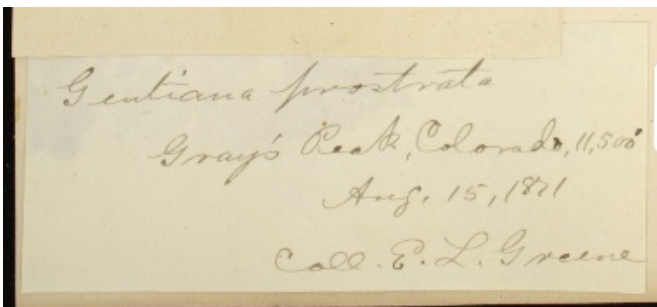 Gentiana prostrata
Gray's Peak, Colorado, 11,500'
Aug. 15, 1871
Coll. E. L. Greene